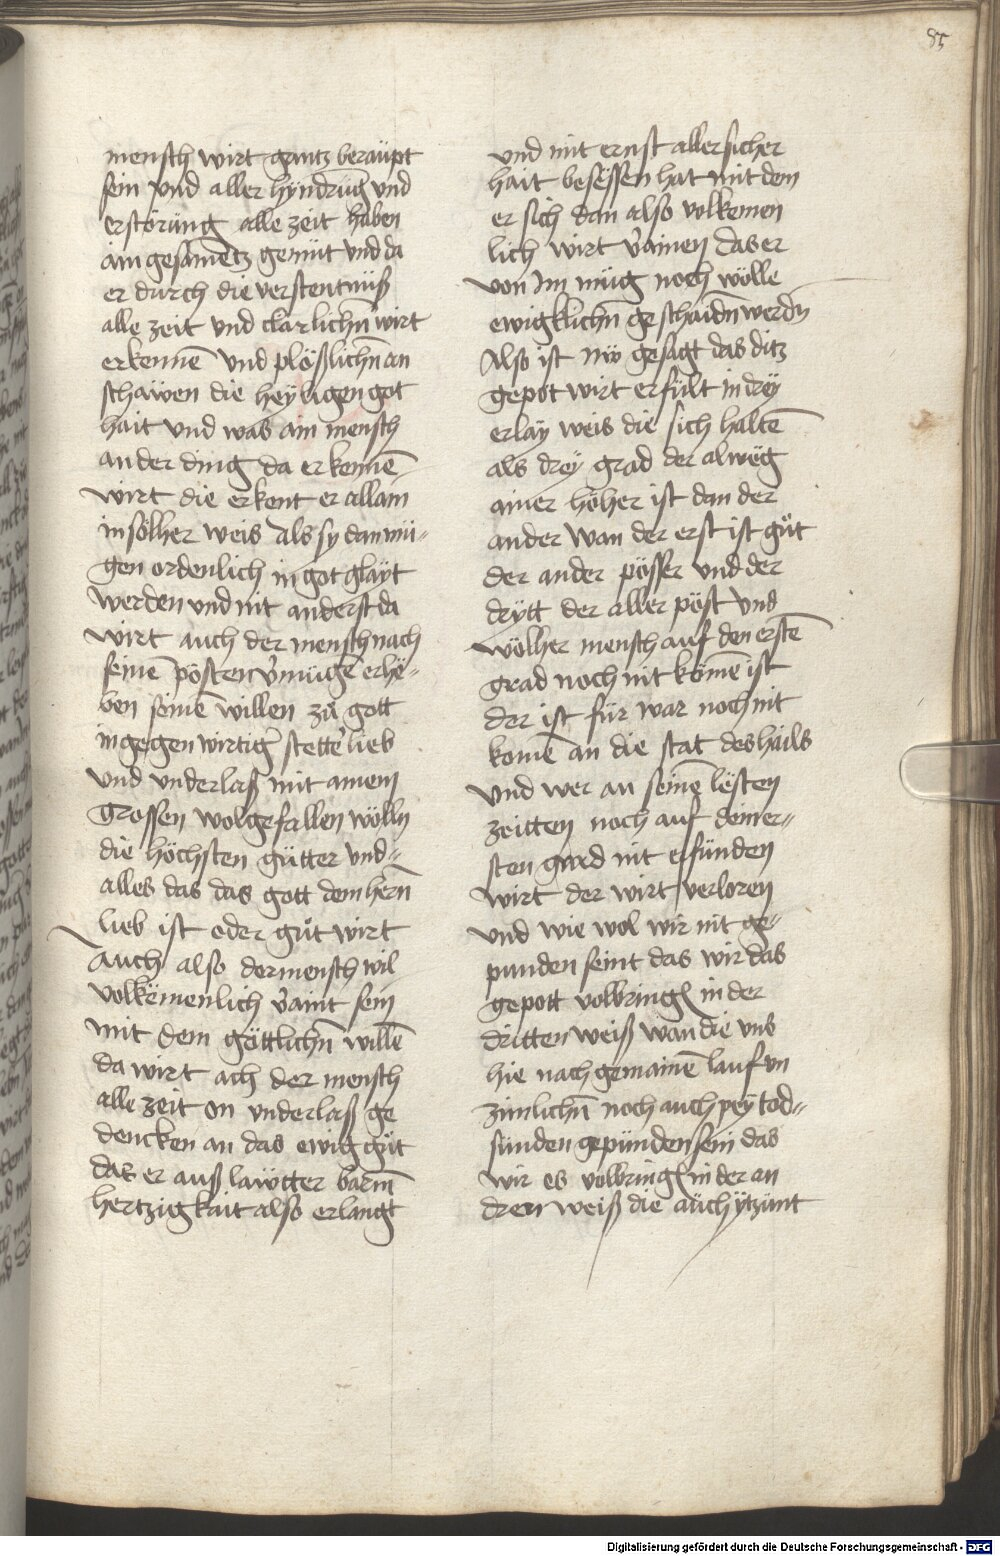 85
mensch wirt gantz beraüpt
sein vnd aller hyndrüg vnd
erstörüng alle zeit haben
ain gesamētz gemüt vnd da
er durch die verstentnüß
alle zeit vnd clarlichn̄ wirt
erkennē vnd plößlichn̄ an
schawen die heyligen got
hait vnd was ain mensch
ander ding da erkennē
wirt die erkent er allain
in sölher weis als sy dan mü-
gen ordenlich in got glayt
werden vnd nit anderst da
wirt auch der mensch nach
seinē pösten v̓mügē erhe-
ben seinē willen zů gott
in gegenwirtig̓ stette̓ lieb
vnd vnderlaß mit ainem
grossen wolgefallen wölln
die höchsten gütter vnd
alles das das gott dem hern̄
lieb ist oder gůt wirt
Auch also der mensch wil
volkemenlich v̓aint sein
mit dem göttlichn̄ willē
da wirt ach der mensch
alle zeit on vnderlaß ge
dencken an das ewig gůt
das er auß lawtter barm̄
hertzigkait also erlangt
vnd mit ernst aller sicher
hait besessen hat mit dem
er sich dan also volkemen
lich wirt v̓ainen das er
von Im müg noch wölle
ewigklichn̄ geschaidn̄ werdn̄
Also ist nw gesagt das ditz
gepot wirt erfült in drey
erlay weis die sich haltē
als drey grad der alweg
ainer höher ist dan der
ander wan der erst ist gůt
der ander pösser vnd der
drytt der aller pöst vnd
wölher mensch auf den erstē
grad noch nit kömē ist
der ist für war noch nit
komē an die stat des hails
vnd wer an seinē lesten
zeitten noch auf dem er-
sten grad nit erfünden
wirt der wirt verloren
vnd wie wol wir nit ge-
punden seint das wir das
gepott volbringen in der
dritten weiß wan die vns
hie nach gemainē lauf vn
zimlichn̄ noch auch pey tod-
sünden gepünden sein das
wir es volbringen in der an
dren weiß die aüch ytzünt
Digitalisierung gefördert durch die Deutsche Forschungsgemeinschaft - DFG